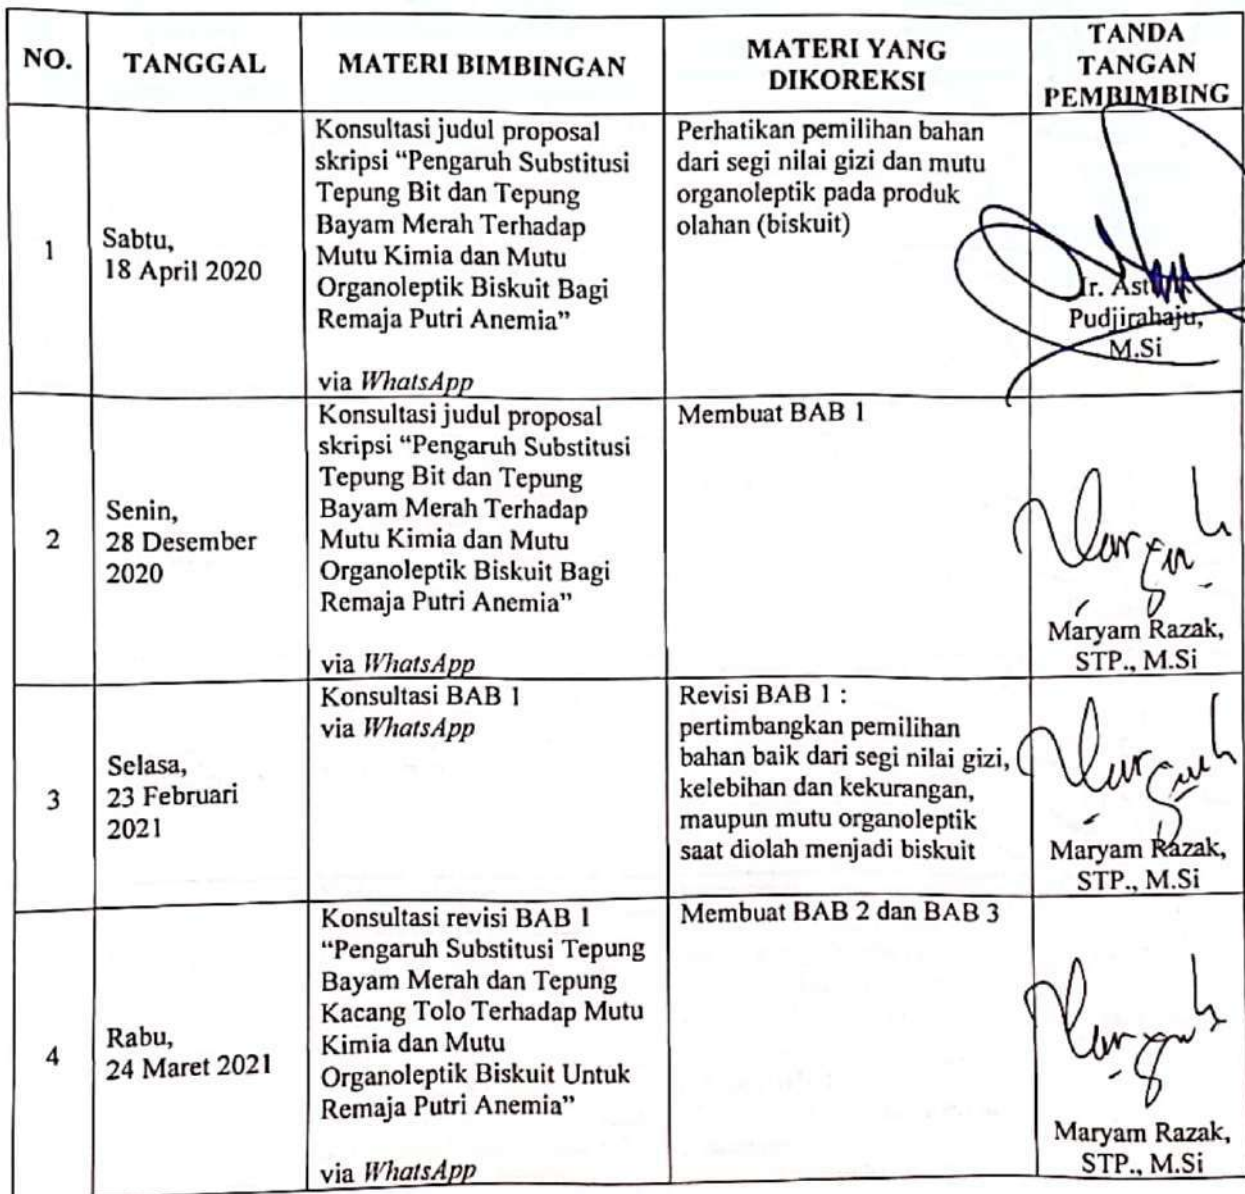 NO.
TANGGAL
MATERI BIMBINGAN
MATERI YANG
DIKOREKSI
TANDA
TANGAN
PEMBIMBING
1
Sabtu,
18 April 2020
Konsultasi judul proposal
skripsi “Pengaruh Substitusi
Tepung Bit dan Tepung
Bayam Merah Terhadap
Mutu Kimia dan Mutu
Organoleptik Biskuit Bagi
Remaja Putri Anemia”
via WhatsApp
Perhatikan pemilihan bahan
dari segi nilai gizi dan mutu
organoleptik pada produk
olahan (biskuit)
Ir.
Pudjirahaju,
M.Si
2
Senin,
28 Desember
2020
Konsultasi judul proposal
skripsi “Pengaruh Substitusi
Tepung Bit dan Tepung
Bayam Merah Terhadap
Mutu Kimia dan Mutu
Organoleptik Biskuit Bagi
Remaja Putri Anemia”
via WhatsApp
Membuat BAB 1
Maryam Razak,
STP., M.Si
3
Selasa,
23 Februari
2021
Konsultasi BAB 1
via WhatsApp
Revisi BAB 1 :
pertimbangkan pemilihan
bahan baik dari segi nilai gizi,
kelebihan dan kekurangan,
maupun mutu organoleptik
saat diolah menjadi biskuit
Maryam Razak,
STP., M.Si
4
Rabu,
24 Maret 2021
Konsultasi revisi BAB 1
“Pengaruh Substitusi Tepung
Bayam Merah dan Tepung
Kacang Tolo Terhadap Mutu
Kimia dan Mutu
Organoleptik Biskuit Untuk
Remaja Putri Anemia”
via WhatsApp
Membuat BAB 2 dan BAB 3
Maryam Razak,
STP., M.Si